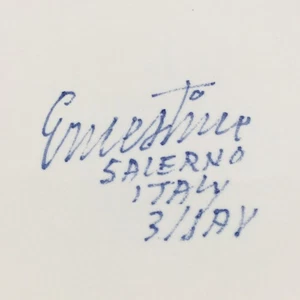 Ernestine
SALERNO
ITALY
3/JAY